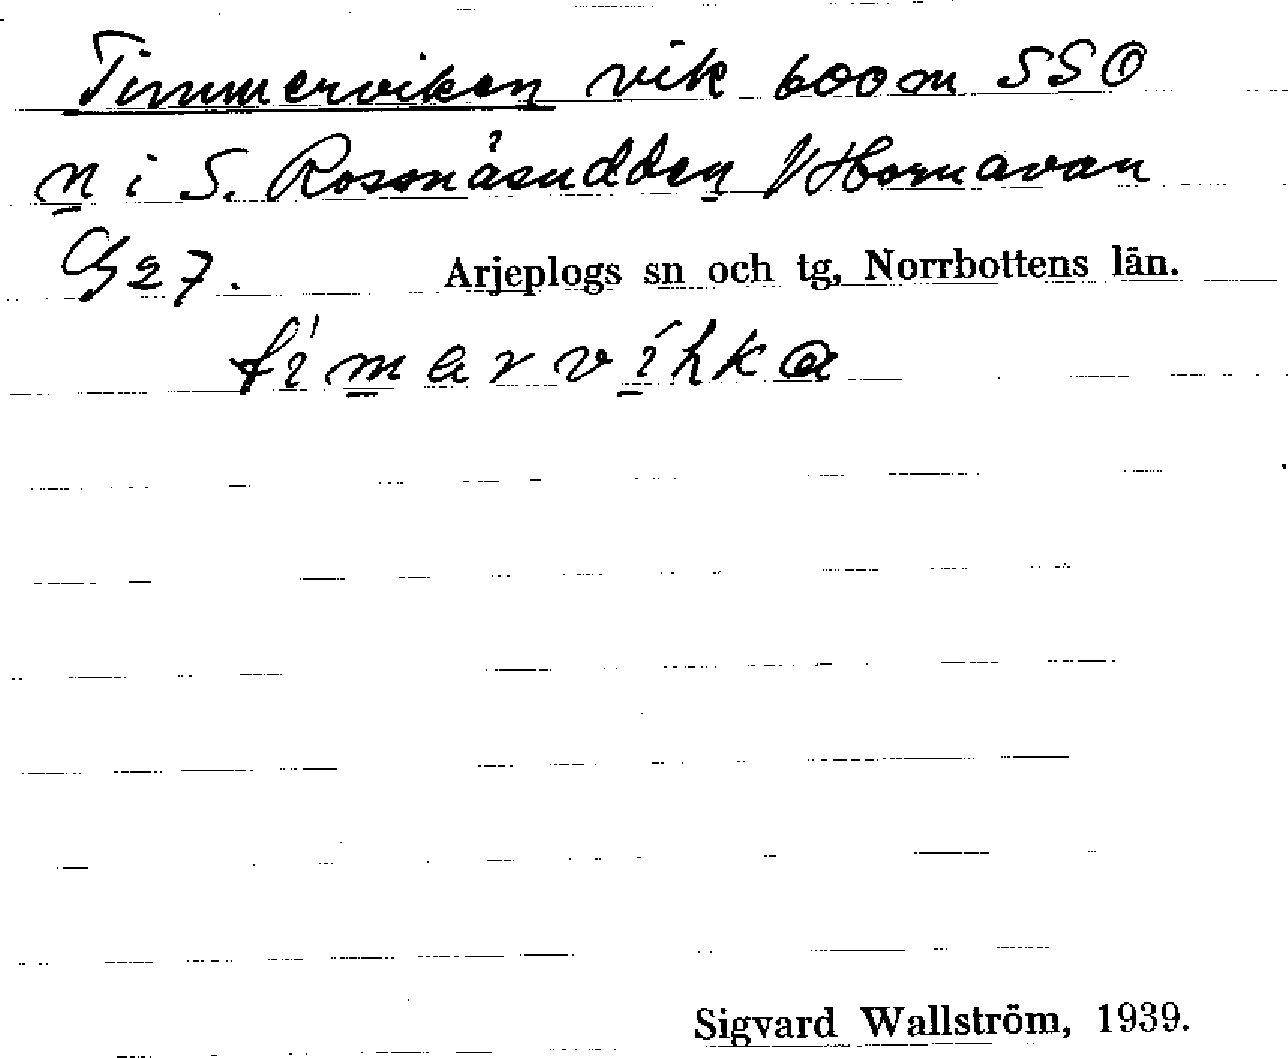 Timmerviken vik 600 m SSO
n i S. Rossnäsudden i Hornavan
G 27. Arjeplogs sn och tg, Norrbottens län.
tímarvíhka
Sigvard Wallström, 1939.